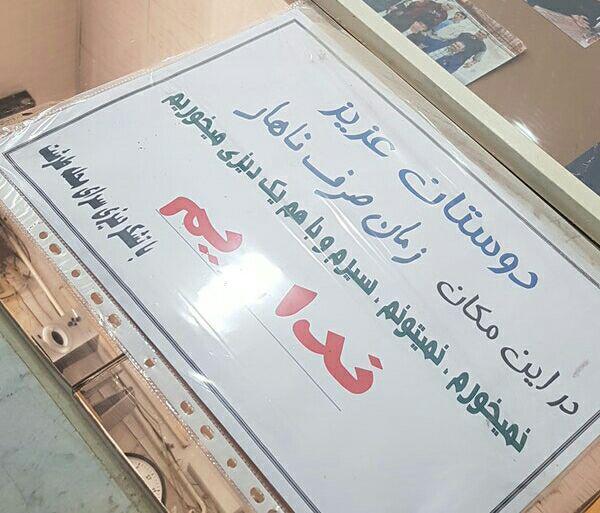 دوستان عزیز
در این مکان زمان صرف ناهار
نمیخورم ، نمیتونم ، سیرم و با هم یک دیزی میخوریم
نداریم
با تشکر دیزی سرای